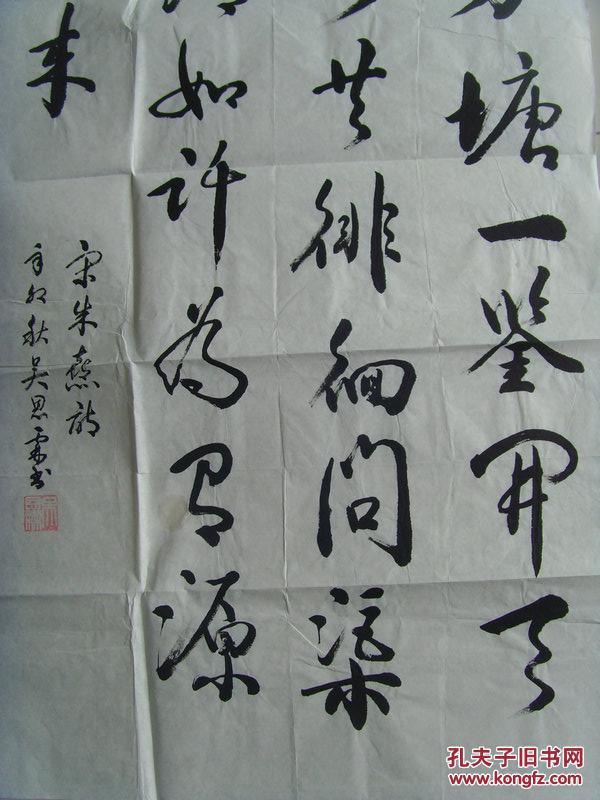 方塘一鉴开天
共徘徊问渠
如许为有源
来
宋朱熹诗
辛卯秋吴思霖书
孔夫子旧书网
www.kongfz.com